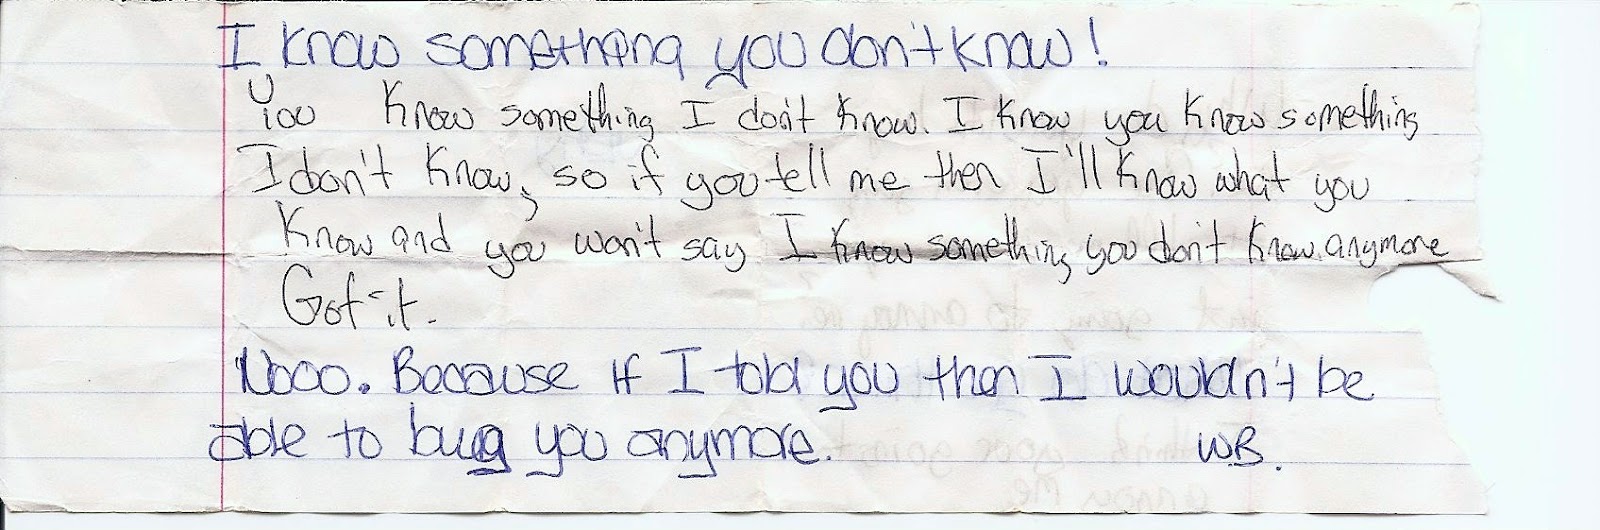 I know something you don't know!
You know something I don't know. I know you know something
I don't know, so if you tell me then I'll know what you
know and you won't say I know something you don't know anymore
Got it.
Nooo. Because if I told you then I wouldn't be
able to bug you anymore. W.B.